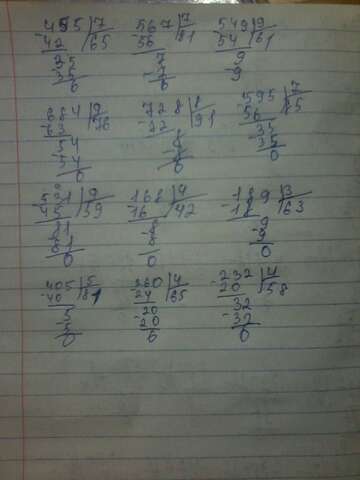 455 7 567 7 549 9
-42 65 -56 81 -54 61
35 7 9
-35 -7 -9
0 0
684 9 728 8 595 7
-63 76 -72 91 -56 85
54 8 35
-54 -8 -35
0 0 0
531 9 168 4 189 3
-45 59 -16 42 -18 63
81 8 9
-81 8 9
0 0 0
405 5 260 4 232 4
-40 81 24 65 20 58
5 20 32
5 -20 -32
0 0 0